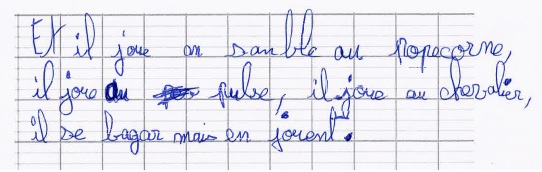 Et il joue an sanble au popecorne,
il joue du pulse, il joue au chevalier,
il se bagar mais en jouent.